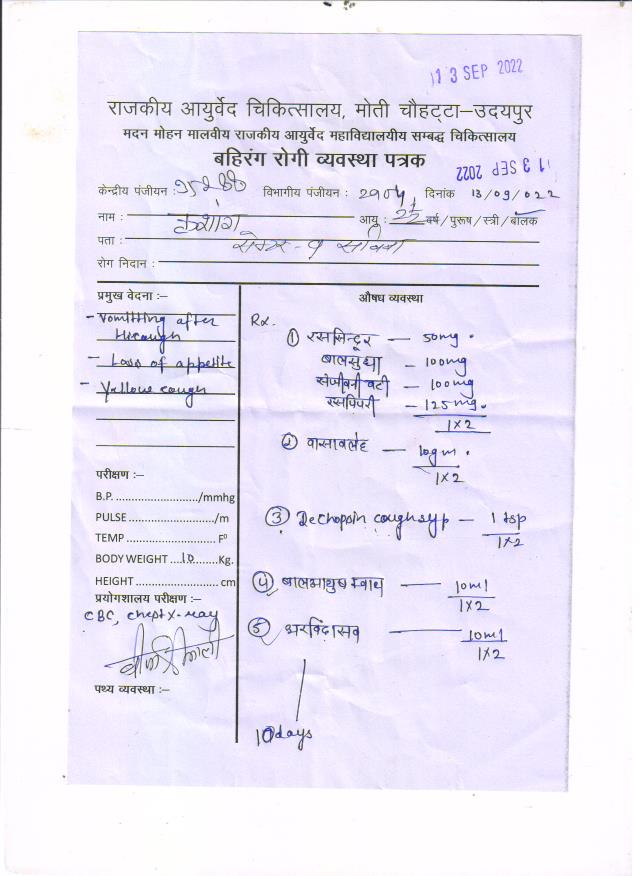 13 SEP 2022
राजकीय आयुर्वेद चिकित्सालय, मोती चौहट्टा–उदयपुर
मदन मोहन मालवीय राजकीय आयुर्वेद महाविद्यालयीय सम्बद्ध चिकित्सालय
बहिरंग रोगी व्यवस्था पत्रक
13 SEP 2022
केन्द्रीय पंजीयन : विभागीय पंजीयन : 2904 दिनांक 13/09/022
नाम : आयु : वर्ष / पुरूष / स्त्री / बालक
पता :
रोग निदान :
प्रमुख वेदना :–
- Vomitting after
Hicough
- Loss of appetite
- Yellow cough
परीक्षण :–
B.P. ............................/mmhg
PULSE ............................/m
TEMP ............................ F⁰
BODY WEIGHT ....10.......Kg.
HEIGHT ........................... cm
प्रयोगशालय परीक्षण :–
CBC, chest x-ray
पथ्य व्यवस्था :–
औषध व्यवस्था
Rx.
① रससिन्दूर — 50mg.
बालसुधा — 100mg
संजीवनी वटी — 100mg
रसपिपरी — 125mg.
1x2
② वासावलेह — 10gm.
1x2
③ Dechopsin cough syp — 1 tsp
1x2
④ 10ml
1x2
⑤ अरविंदासव — 10ml
1x2
10 days